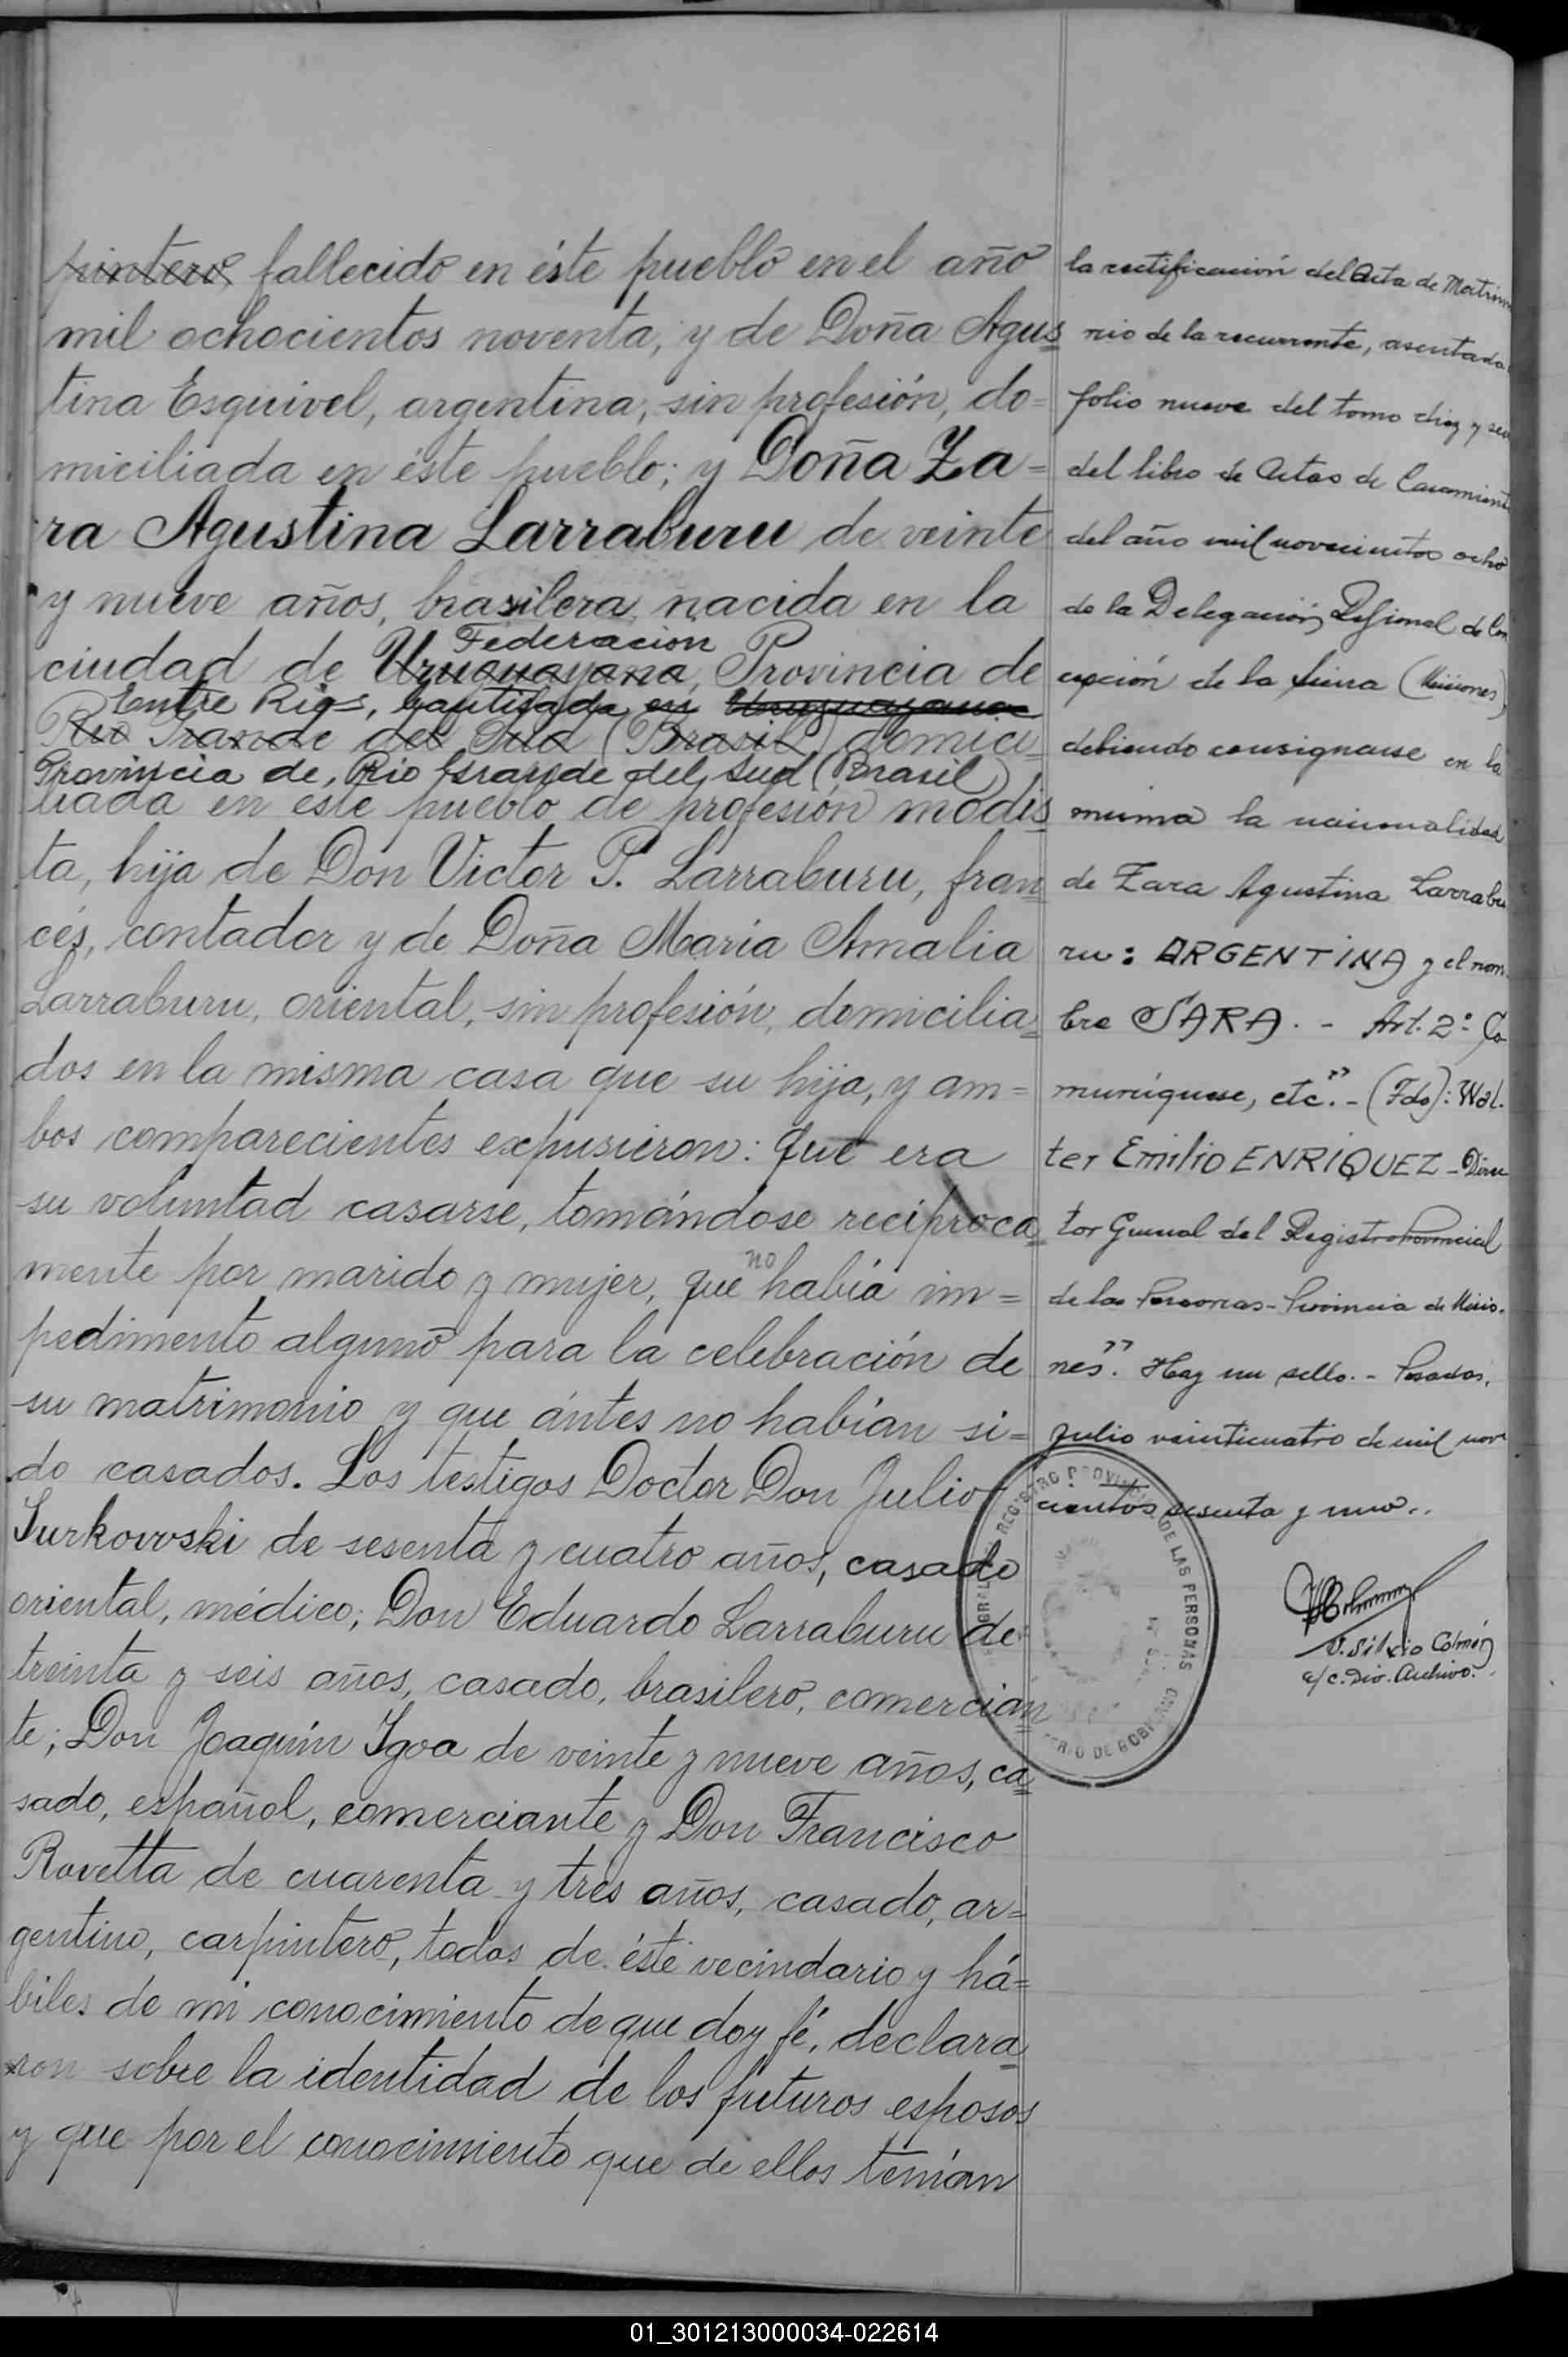 pintero fallecido en éste pueblo en el año
mil ochocientos noventa, y de Doña Agus
tina Esquivel, argentina, sin profesión, do=
miciliada en éste pueblo; y Doña Za=
ra Agustina Larraburu de veinte
y nueve años, brasilera, nacida en la
Federacion
ciudad de Uruguayana, Provincia de
Entre Rios, bautisada en Uruguayana
Rio Grande del Sud (Brasil) domici
Provincia de, Rio Grande del Sud (Brasil)
liada en este pueblo de profesión modis
ta, hija de Don Victor P. Larraburu, fran
cés, contador y de Doña Maria Amalia
Larraburu, oriental, sin profesión, domicilia
dos en la misma casa que su hija, y am=
bos comparecientes expusieron: que era
su voluntad casarse, tomándose reciproca
no
mente por marido y mujer, que había im=
pedimento alguno para la celebración de
su matrimonio y que ántes no habían si=
do casados. Los testigos Doctor Don Julio
Surkowski de sesenta y cuatro años, casado
oriental, médico; Don Eduardo Larraburu de
treinta y seis años, casado, brasilero, comercian
te; Don Joaquín Igoa de veinte y nueve años, ca
sado, español, comerciante y Don Francisco
Rovetta de cuarenta y tres años, casado, ar=
gentino, carpintero, todos de éste vecindario y há=
biles de mi conocimiento de que doy fé, declara
ron sobre la identidad de los futuros esposos
y que por el conocimiento que de ellos tenían
la rectificación del Acta de Matrimo
nio de la recurrente, asentada
folio nueve del tomo diez y seis
del libro de Actas de Casamiento
del año mil novecientos ocho
de la Delegación Regional de Con
cepción de la Sierra (Misiones)
debiendo consignarse en la
misma la nacionalidad
de Zara Agustina Larrabu
ru: ARGENTINA y el nom
bre SARA. - Art. 2º: Co
muníquese, etc." - (Fdo): Wal.
ter Emilio ENRIQUEZ - Direc
tor General del Registro Provincial
de las Personas - Provincia de Misio.
nes". Hay un sello. - Posadas,
Julio veinticuatro de mil nove
cientos sesenta y uno..
REGISTRO PROVINCIAL DE LAS PERSONAS
V. Silvio Colmán
a/c. Div. Archivo.
01_301213000034-022614